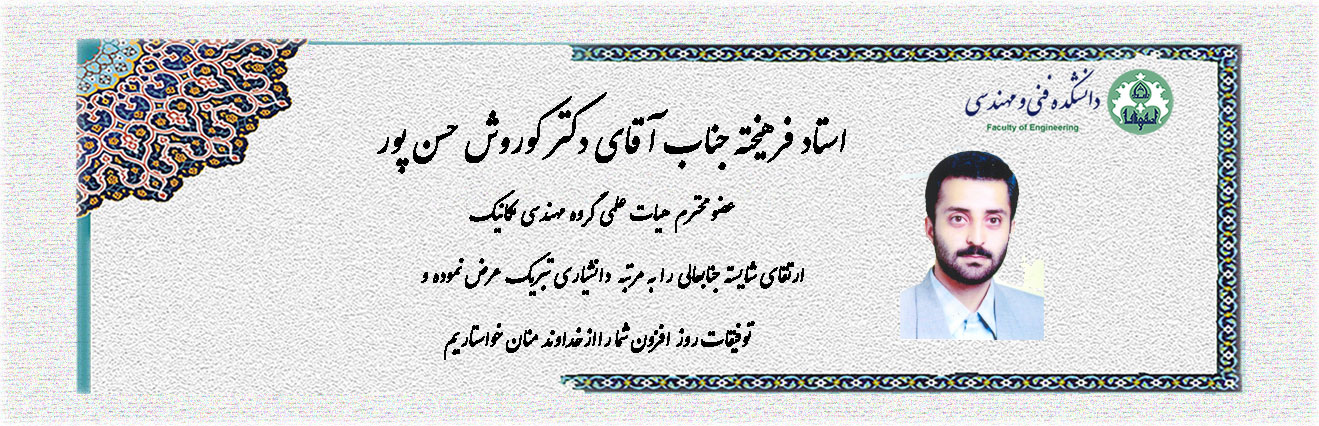 دانشکده فنی و مهندسی
Faculty of Engineering
استاد فرهیخته جناب آقای دکتر کوروش حسن پور
عضو محترم هیات علمی گروه مهندسی مکانیک
ارتقای شایسته جنابعالی را به مرتبه دانشیاری تبریک عرض نموده و
توفیقات روز افزون شما را از خداوند منان خواستاریم